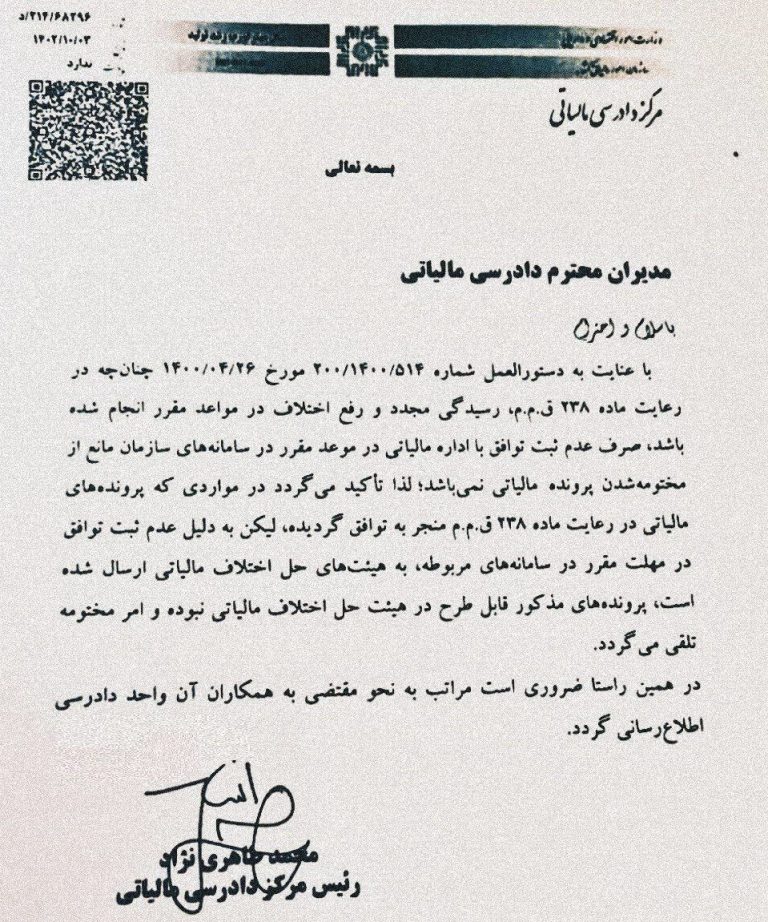 ۲۱۴/۶۸۲۹۶/د
۱۴۰۲/۱۰/۰۳
ندارد
وزارت امور اقتصادی و دارایی
سازمان امور مالیاتی کشور
مرکز دادرسی مالیاتی
بسمه تعالی
مدیران محترم دادرسی مالیاتی
باسلام و احترام
با عنایت به دستورالعمل شماره ۲۰۰/۱۴۰۰/۵۱۴ مورخ ۱۴۰۰/۰۴/۲۶ چنان‌چه در
رعایت ماده ۲۳۸ ق.م.م، رسیدگی مجدد و رفع اختلاف در مواعد مقرر انجام شده
باشد، صرف عدم ثبت توافق با اداره مالیاتی در موعد مقرر در سامانه‌های سازمان مانع از
مختومه‌شدن پرونده مالیاتی نمی‌باشد؛ لذا تأکید می‌گردد در مواردی که پرونده‌های
مالیاتی در رعایت ماده ۲۳۸ ق.م.م منجر به توافق گردیده، لیکن به دلیل عدم ثبت توافق
در مهلت مقرر در سامانه‌های مربوطه، به هیئت‌های حل اختلاف مالیاتی ارسال شده
است، پرونده‌های مذکور قابل طرح در هیئت حل اختلاف مالیاتی نبوده و امر مختومه
تلقی می‌گردد.
در همین راستا ضروری است مراتب به نحو مقتضی به همکاران آن واحد دادرسی
اطلاع‌رسانی گردد.
محمد طاهری نژاد
رئیس مرکز دادرسی مالیاتی